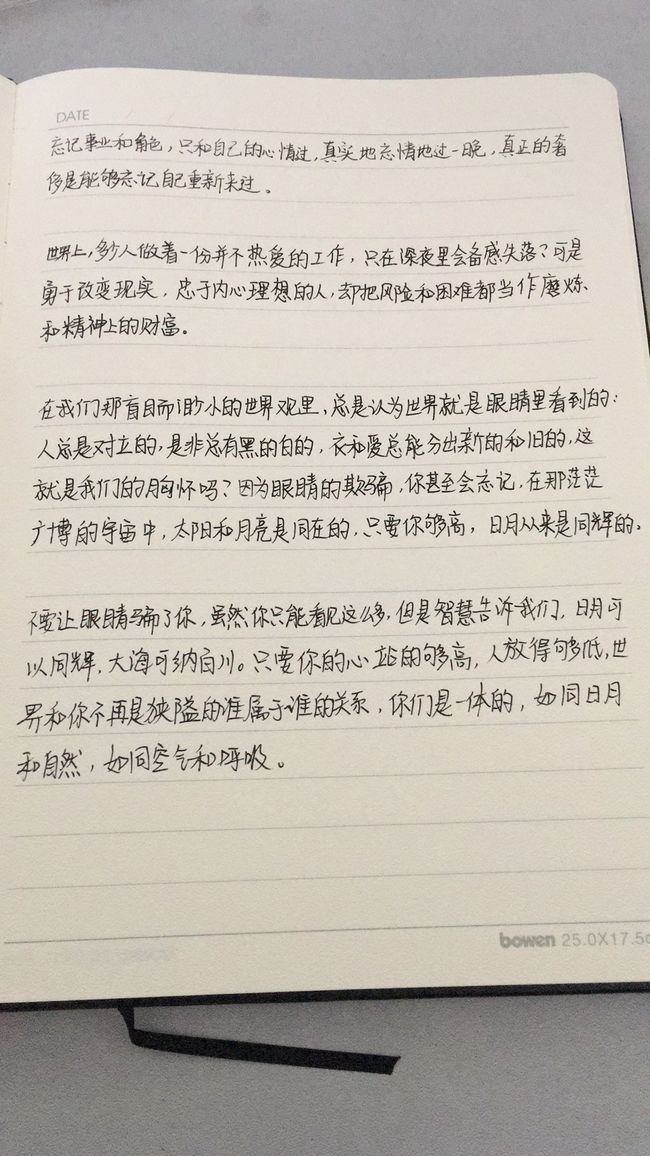 DATE / /
忘记事业和角色，只和自己的心情过，真实地忘情地过一晚，真正的奢
侈是能够忘记自己重新来过。
世界上，多少人做着一份并不热爱的工作，只在深夜里会备感失落？可是
勇于改变现实，忠于内心理想的人，却把风险和困难都当作磨炼
和精神上的财富。
在我们那盲目而渺小的世界观里，总是认为世界就是眼睛里看到的：
人总是对立的，是非总有黑的白的，衣和爱总能分出新的和旧的，这
就是我们的胸怀吗？因为眼睛的欺骗，你甚至会忘记，在那茫茫
广博的宇宙中，太阳和月亮是同在的，只要你够高，日月从来是同辉的。
不要让眼睛骗了你，虽然你只能看见这么多，但是智慧告诉我们，日月可
以同辉，大海可纳百川。只要你的心站的够高，人放得够低，世
界和你不再是狭隘的谁属于谁的关系，你们是一体的，如同日月
和自然，如同空气和呼吸。
bowen 25.0X17.5c